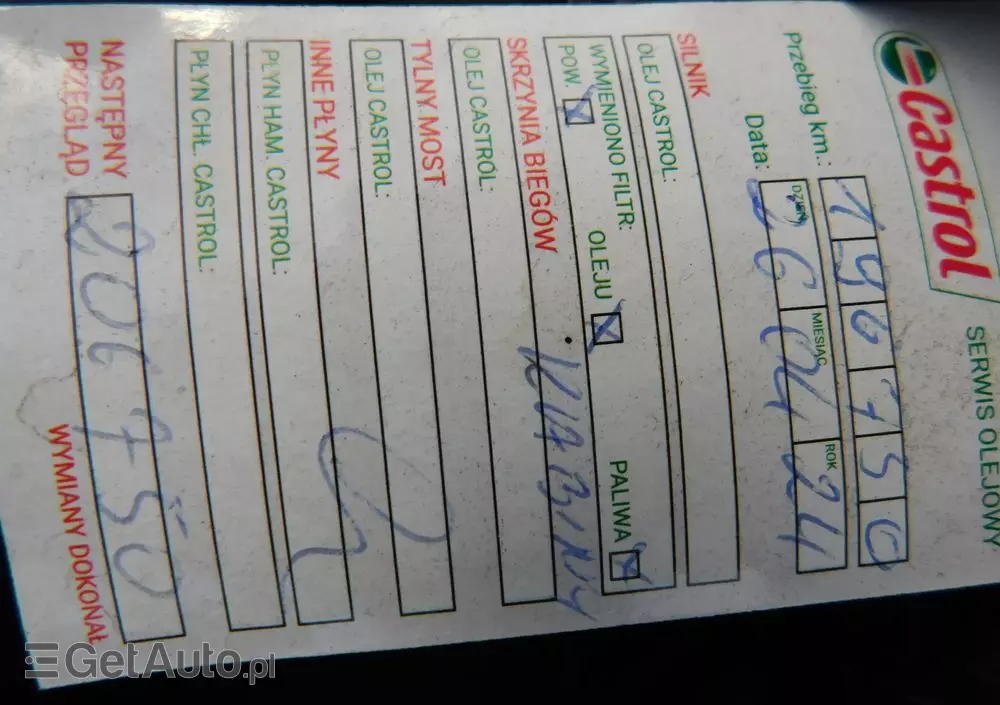 Castrol SERWIS OLEJOWY
Przebieg km.: 196750
DZIEŃ MIESIĄC ROK
Data: 26 04 24
SILNIK
OLEJ CASTROL:
WYMIENIONO FILTR:
POW. X OLEJU X PALIWA X
SKRZYNIA BIEGÓW
OLEJ CASTROL:
TYLNY MOST
OLEJ CASTROL:
INNE PŁYNY
PŁYN HAM. CASTROL:
PŁYN CHŁ. CASTROL:
NASTĘPNY
PRZEGLĄD 206750
WYMIANY DOKONAŁ
GetAuto.pl